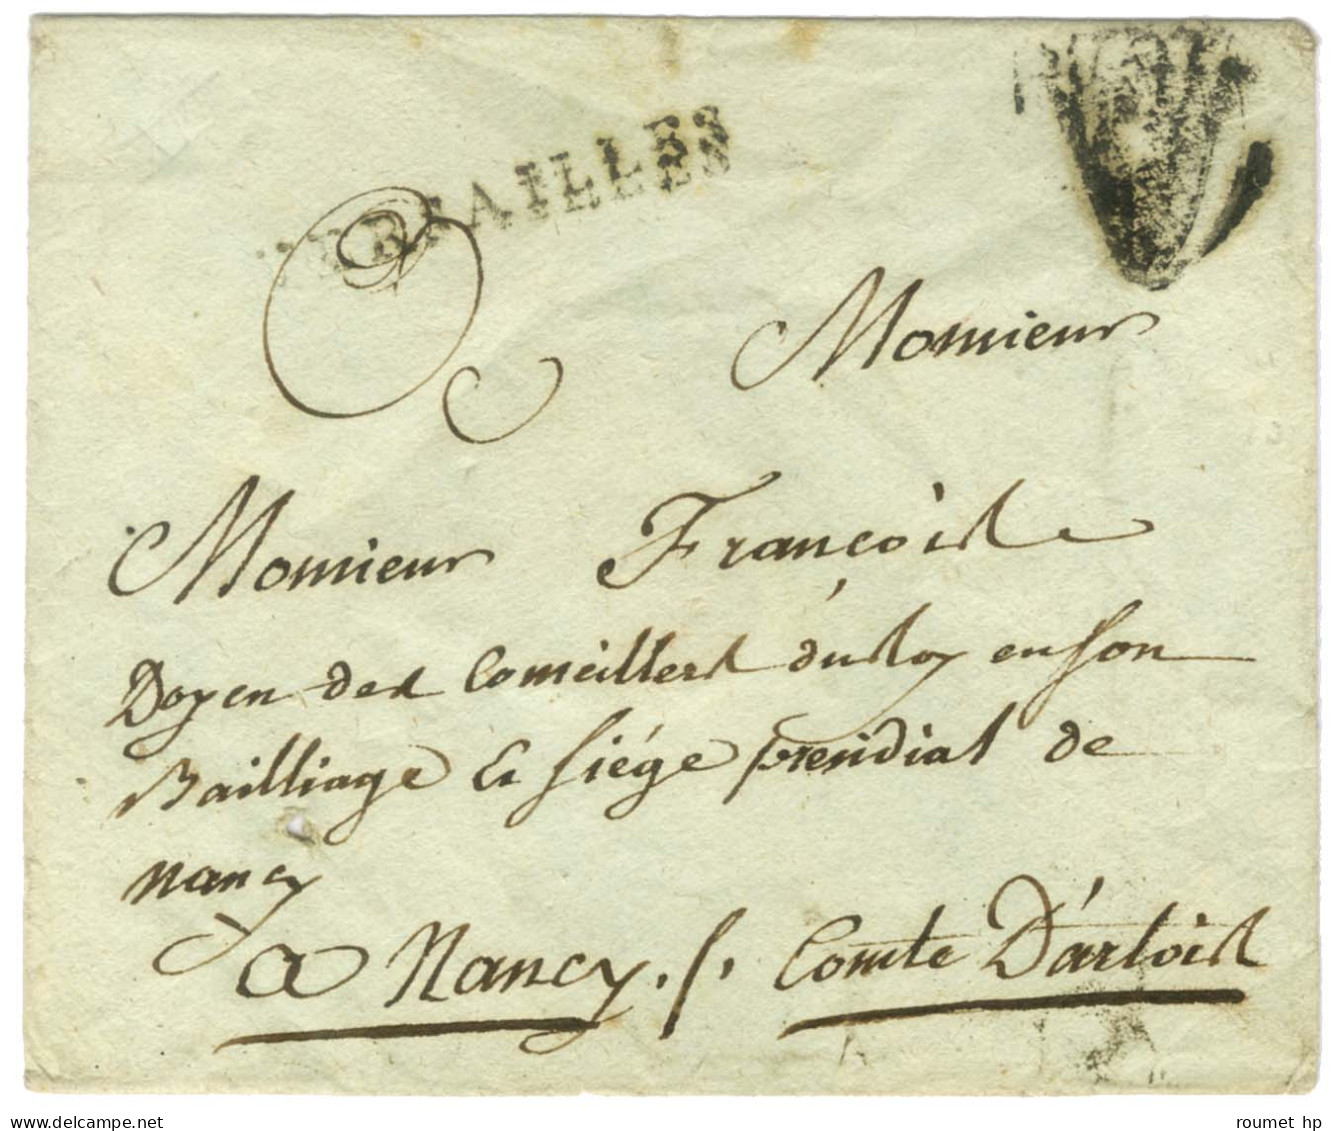 VERSAILLES
Monsieur
Monsieur François
Doyen des Conseillers du Roy en son
Bailliage & siége presidial de
nancy
a Nancy. /. Comte D'artois
delcampe.net
roumet hp